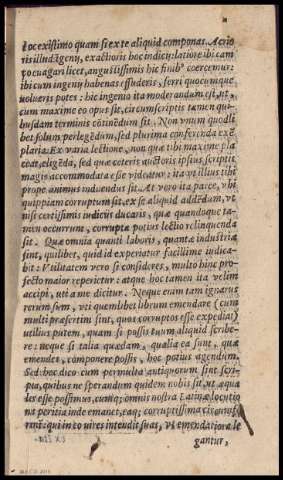 ẽ oc existimo quam si ex te aliquid componas. Acrio
ris illud igenij, exactioris hoc iudicij: latiore ibi cam
ubi cum ingenij habenas effuderis, ferri quocunque
volueris potes: hic ingenio ita moderandum est, ut
cum maxime eo opus sit, circumscriptis tamen qui-
busdam terminis cõtinẽdum sit. Non unum quodli
bet solum perlegẽdum, sed plurima conferenda exẽ
plaria. Ex varia lectione, non quæ tibi maxime pla
ceat, eligẽda, sed quæ cæteris auctoris ipsius scriptis
magis accommodata esse videatur: ita ut illius tibi
prope animus induendus sit. At vero ita parce, ubi
quippiam corruptum sit, ex se aliquid addẽdum, ut
nisi certissimis indicijs ducaris, quæ quandoque ta-
men occurrunt, corrupta potius lectio relinquenda
sit. Quæ omnia quanti laboris, quantæ industriæ
sint, quilibet, qui id experiatur facillime iudica-
bit: Vtilitatem vero si consideres, multo hinc pro-
fecto maior reperietur: atque hoc tamen ita velim
accipi, uti a me dicitur. Neque enim tam ignarus
rerum sum, uti quemlibet librum emendare (cum
multi præsertim sint, quos corruptos esse expediat)
utilius putem, quam si possis tuum aliquid scribe-
re: neque si talia quædam, qualia ea sunt, quæ
emendes, componere possis, hoc potius agendum.
Sed: hoc dico cum permulta antiquorum sint scri-
pta, quibus ne sperandum quidem nobis sit, ut æqua
les esse possimus, cumq; omnis nostra latinæ locutio
nis peritia inde emanet, eaq; corruptissima
rint: qui in eo vires intendit suas, ut emendatiora le
gantur,